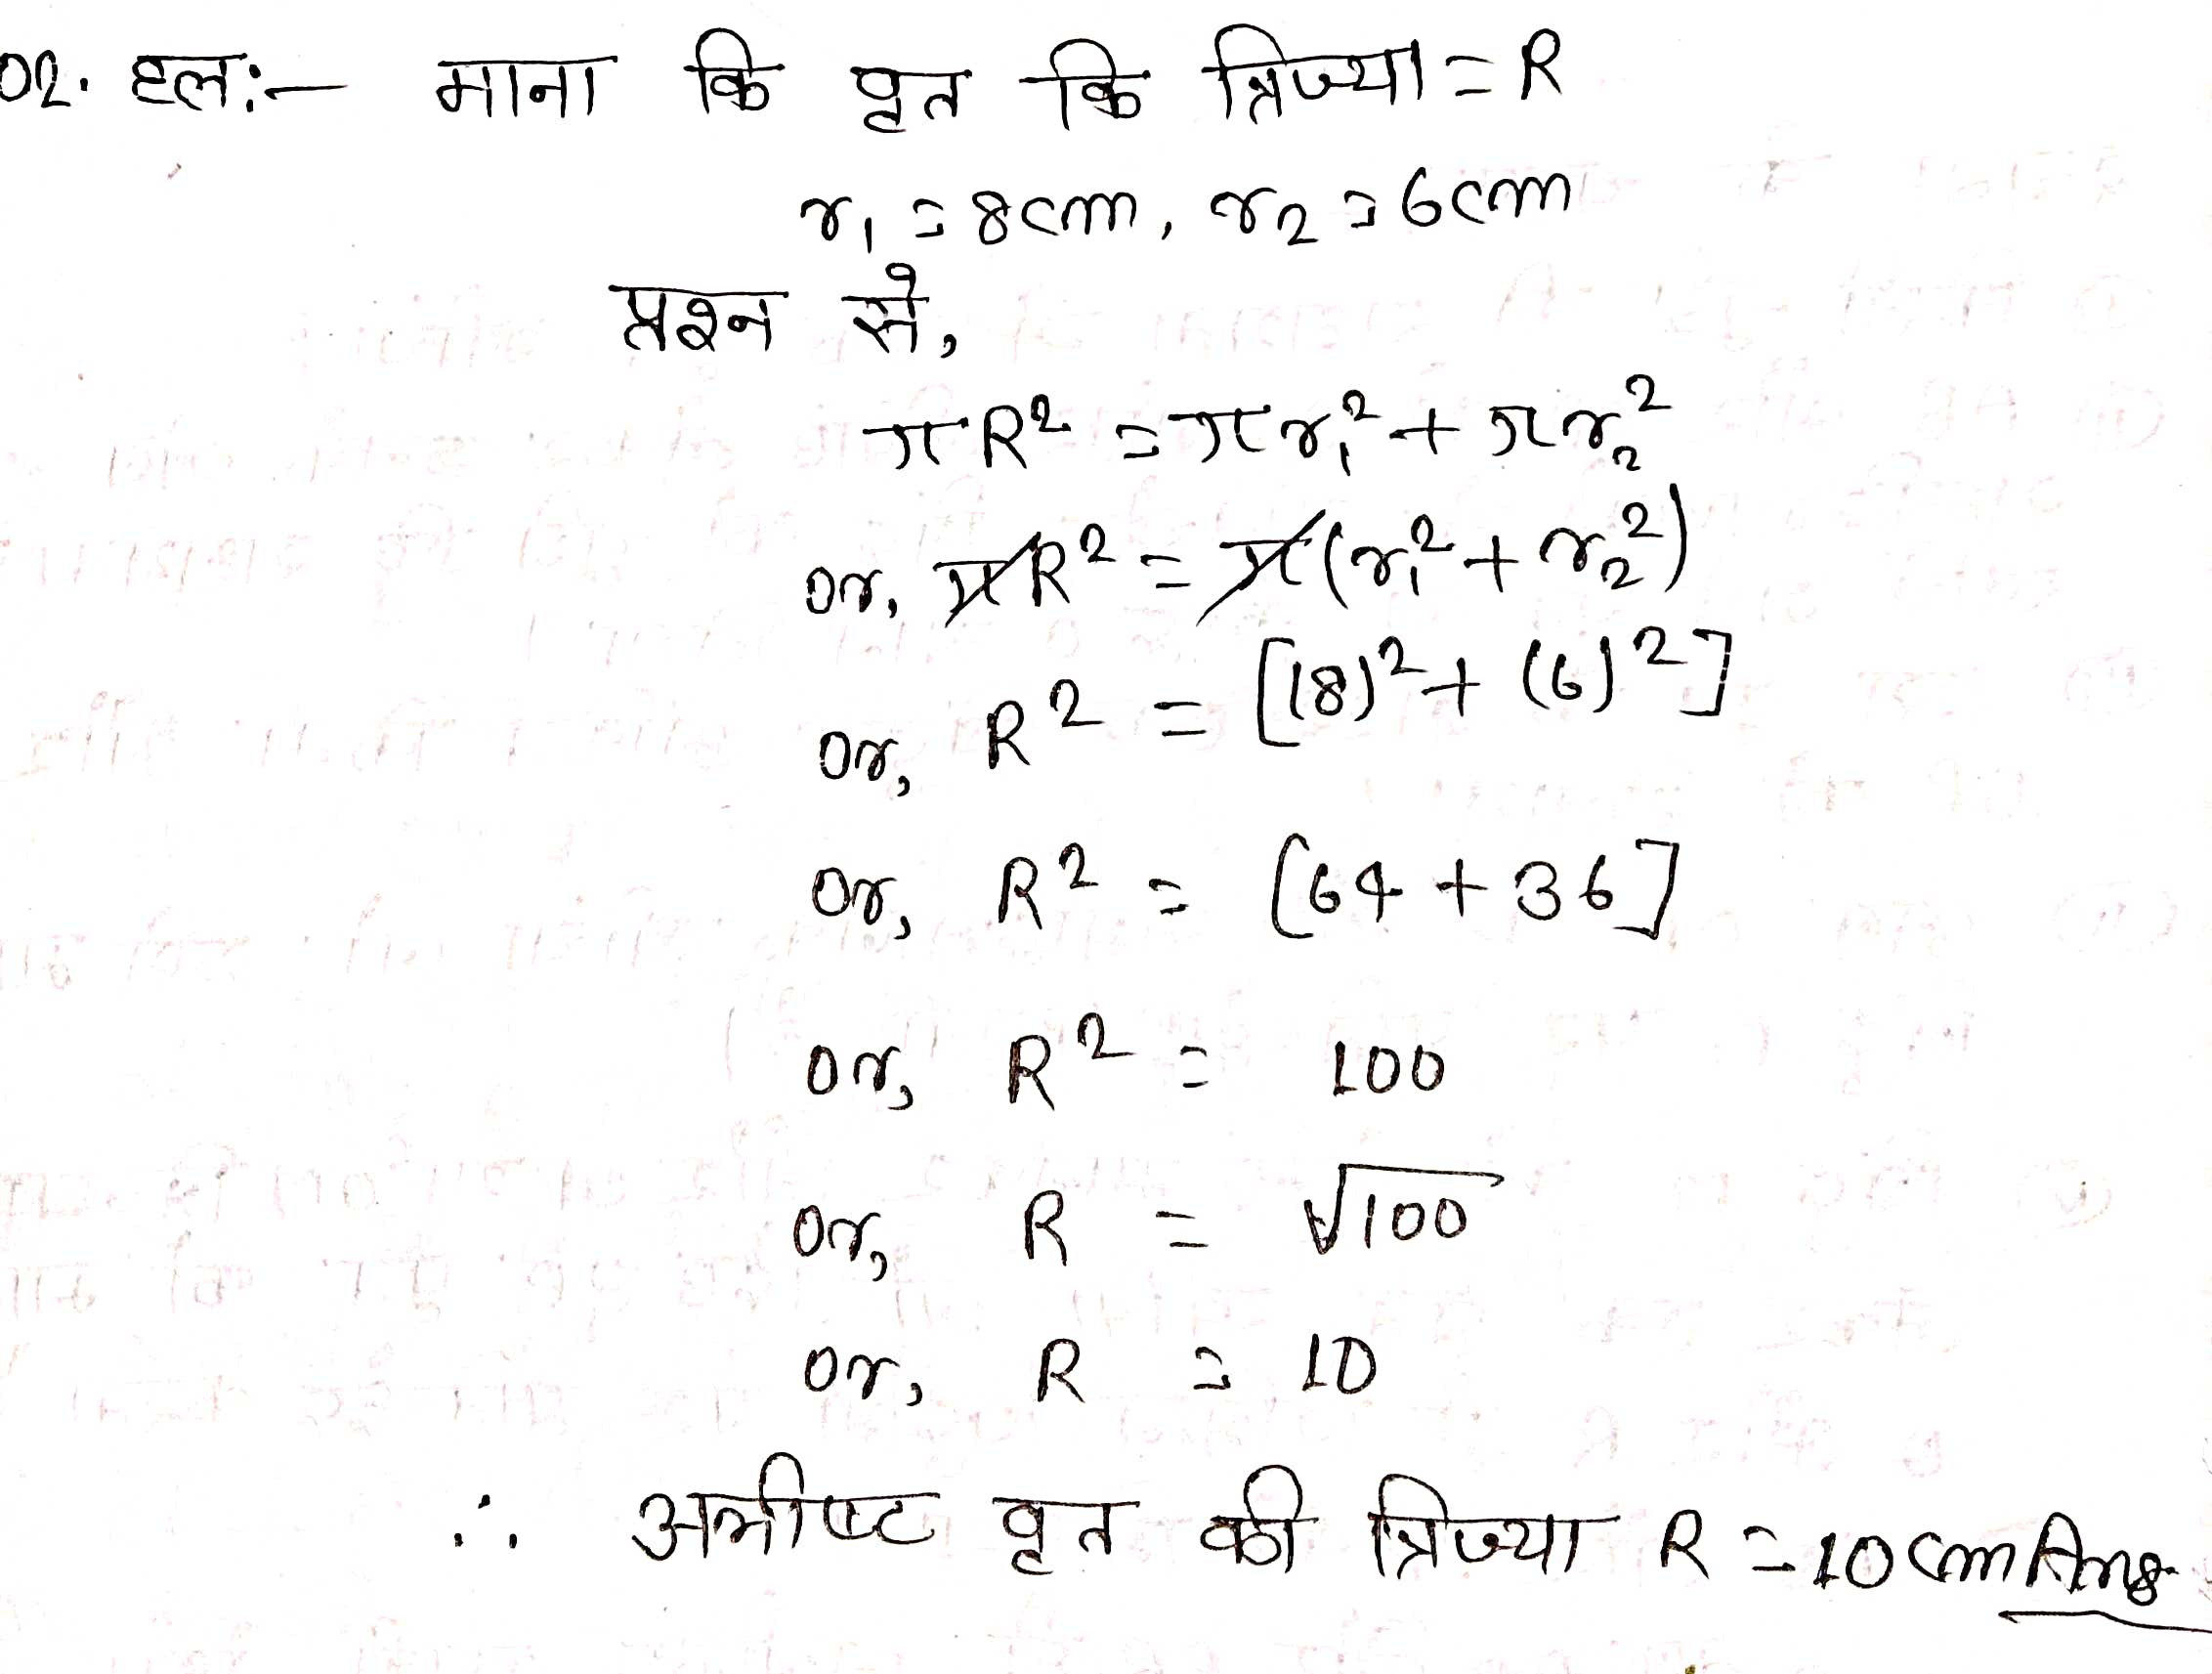 02. हल:- माना कि वृत कि त्रिज्या = R
r₁ = 8cm, r₂ = 6cm
प्रश्न से,
πR² = πr₁² + πr₂²
or, πR² = π(r₁² + r₂²)
or, R² = [(8)² + (6)²]
or, R² = [64 + 36]
or, R² = 100
or, R = √100
or, R = 10
∴ अभीष्ट वृत की त्रिज्या R = 10cm Ans